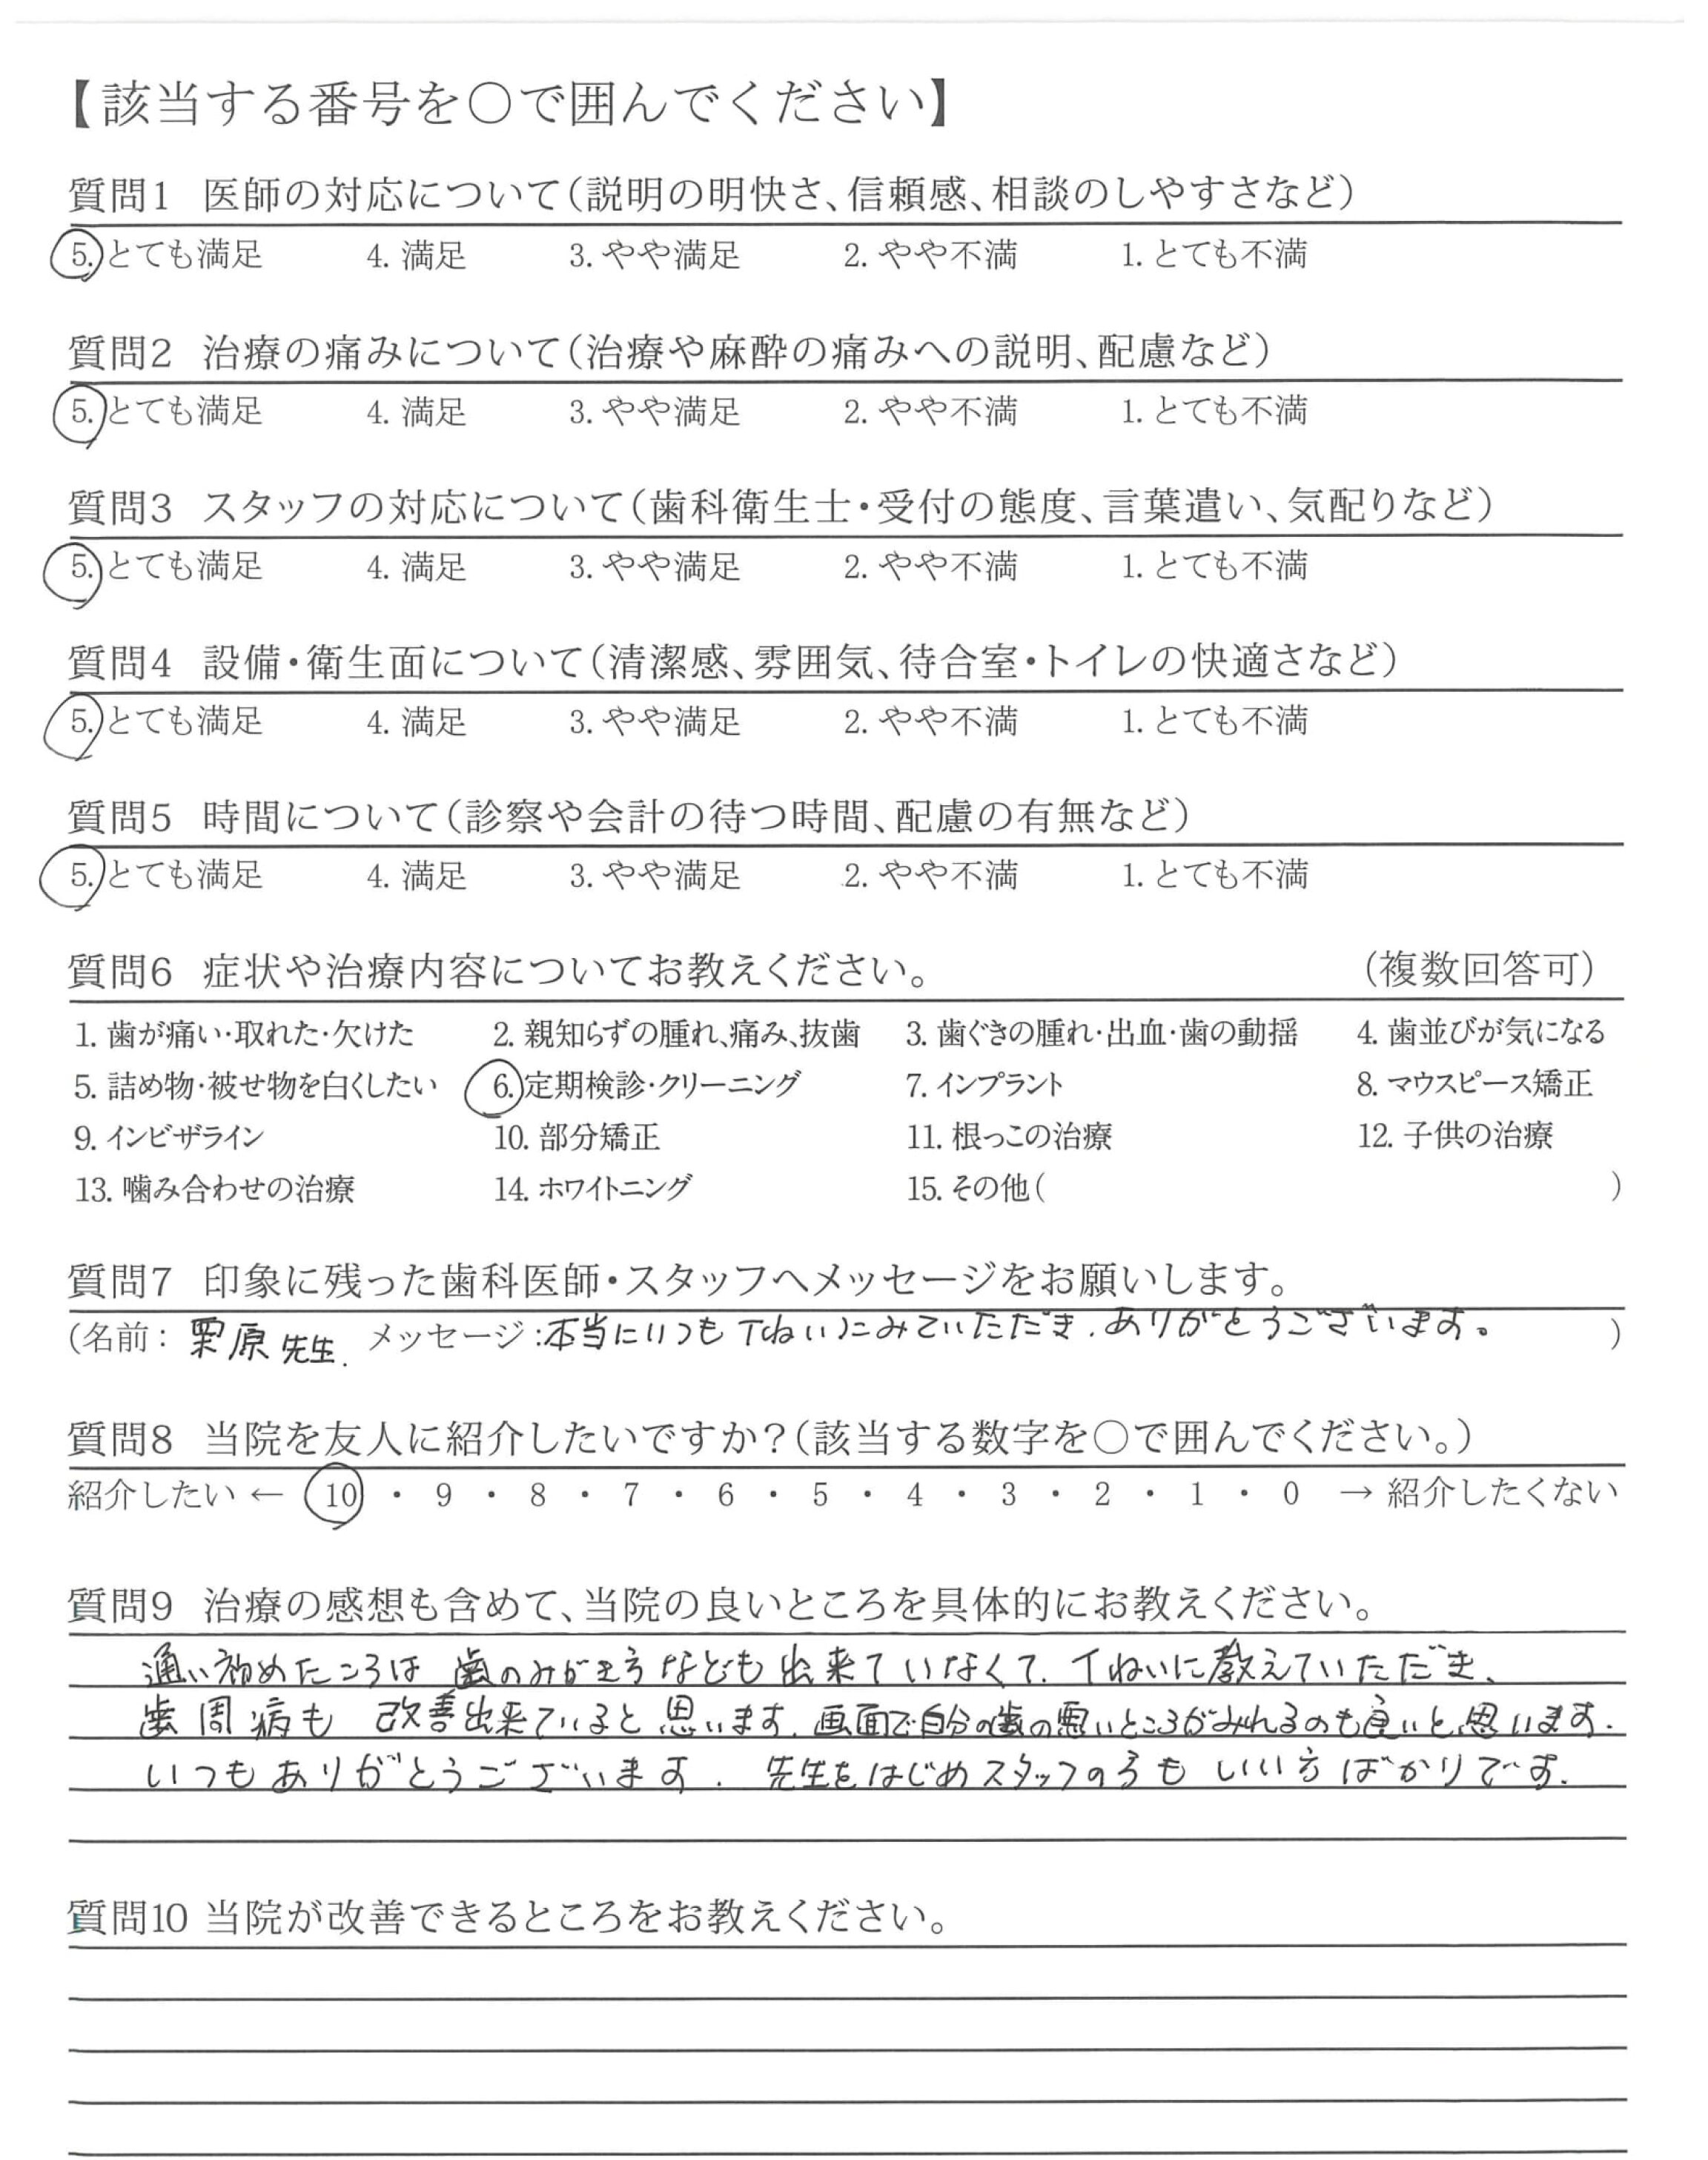 【該当する番号を○で囲んでください】
質問1 医師の対応について(説明の明快さ、信頼感、相談のしやすさなど)
5. とても満足 4. 満足 3. やや満足 2. やや不満 1. とても不満
質問2 治療の痛みについて(治療や麻酔の痛みへの説明、配慮など)
5. とても満足 4. 満足 3. やや満足 2. やや不満 1. とても不満
質問3 スタッフの対応について(歯科衛生士・受付の態度、言葉遣い、気配りなど)
5. とても満足 4. 満足 3. やや満足 2. やや不満 1. とても不満
質問4 設備・衛生面について(清潔感、雰囲気、待合室・トイレの快適さなど)
5. とても満足 4. 満足 3. やや満足 2. やや不満 1. とても不満
質問5 時間について(診察や会計の待つ時間、配慮の有無など)
5. とても満足 4. 満足 3. やや満足 2. やや不満 1. とても不満
質問6 症状や治療内容についてお教えください。 (複数回答可)
1. 歯が痛い・取れた・欠けた 2. 親知らずの腫れ、痛み、抜歯 3. 歯ぐきの腫れ・出血・歯の動揺 4. 歯並びが気になる
5. 詰め物・被せ物を白くしたい 6. 定期検診・クリーニング 7. インプラント 8. マウスピース矯正
9. インビザライン 10. 部分矯正 11. 根っこの治療 12. 子供の治療
13. 噛み合わせの治療 14. ホワイトニング 15. その他( )
質問7 印象に残った歯科医師・スタッフへメッセージをお願いします。
(名前: 栗原先生. メッセージ:本当にいつもていねいにみていただき、ありがとうございます。 )
質問8 当院を友人に紹介したいですか?(該当する数字を○で囲んでください。)
紹介したい ← 10 ・ 9 ・ 8 ・ 7 ・ 6 ・ 5 ・ 4 ・ 3 ・ 2 ・ 1 ・ 0 → 紹介したくない
質問9 治療の感想も含めて、当院の良いところを具体的にお教えください。
通い初めたころは 歯のみがき方なども出来ていなくて、ていねいに教えていただき、
歯周病も 改善出来ていると思います。画面で自分の歯の悪いところがみれるのも良いと思います。
いつもありがとうございます。 先生をはじめスタッフの方も いい方ばかりです。
質問10 当院が改善できるところをお教えください。